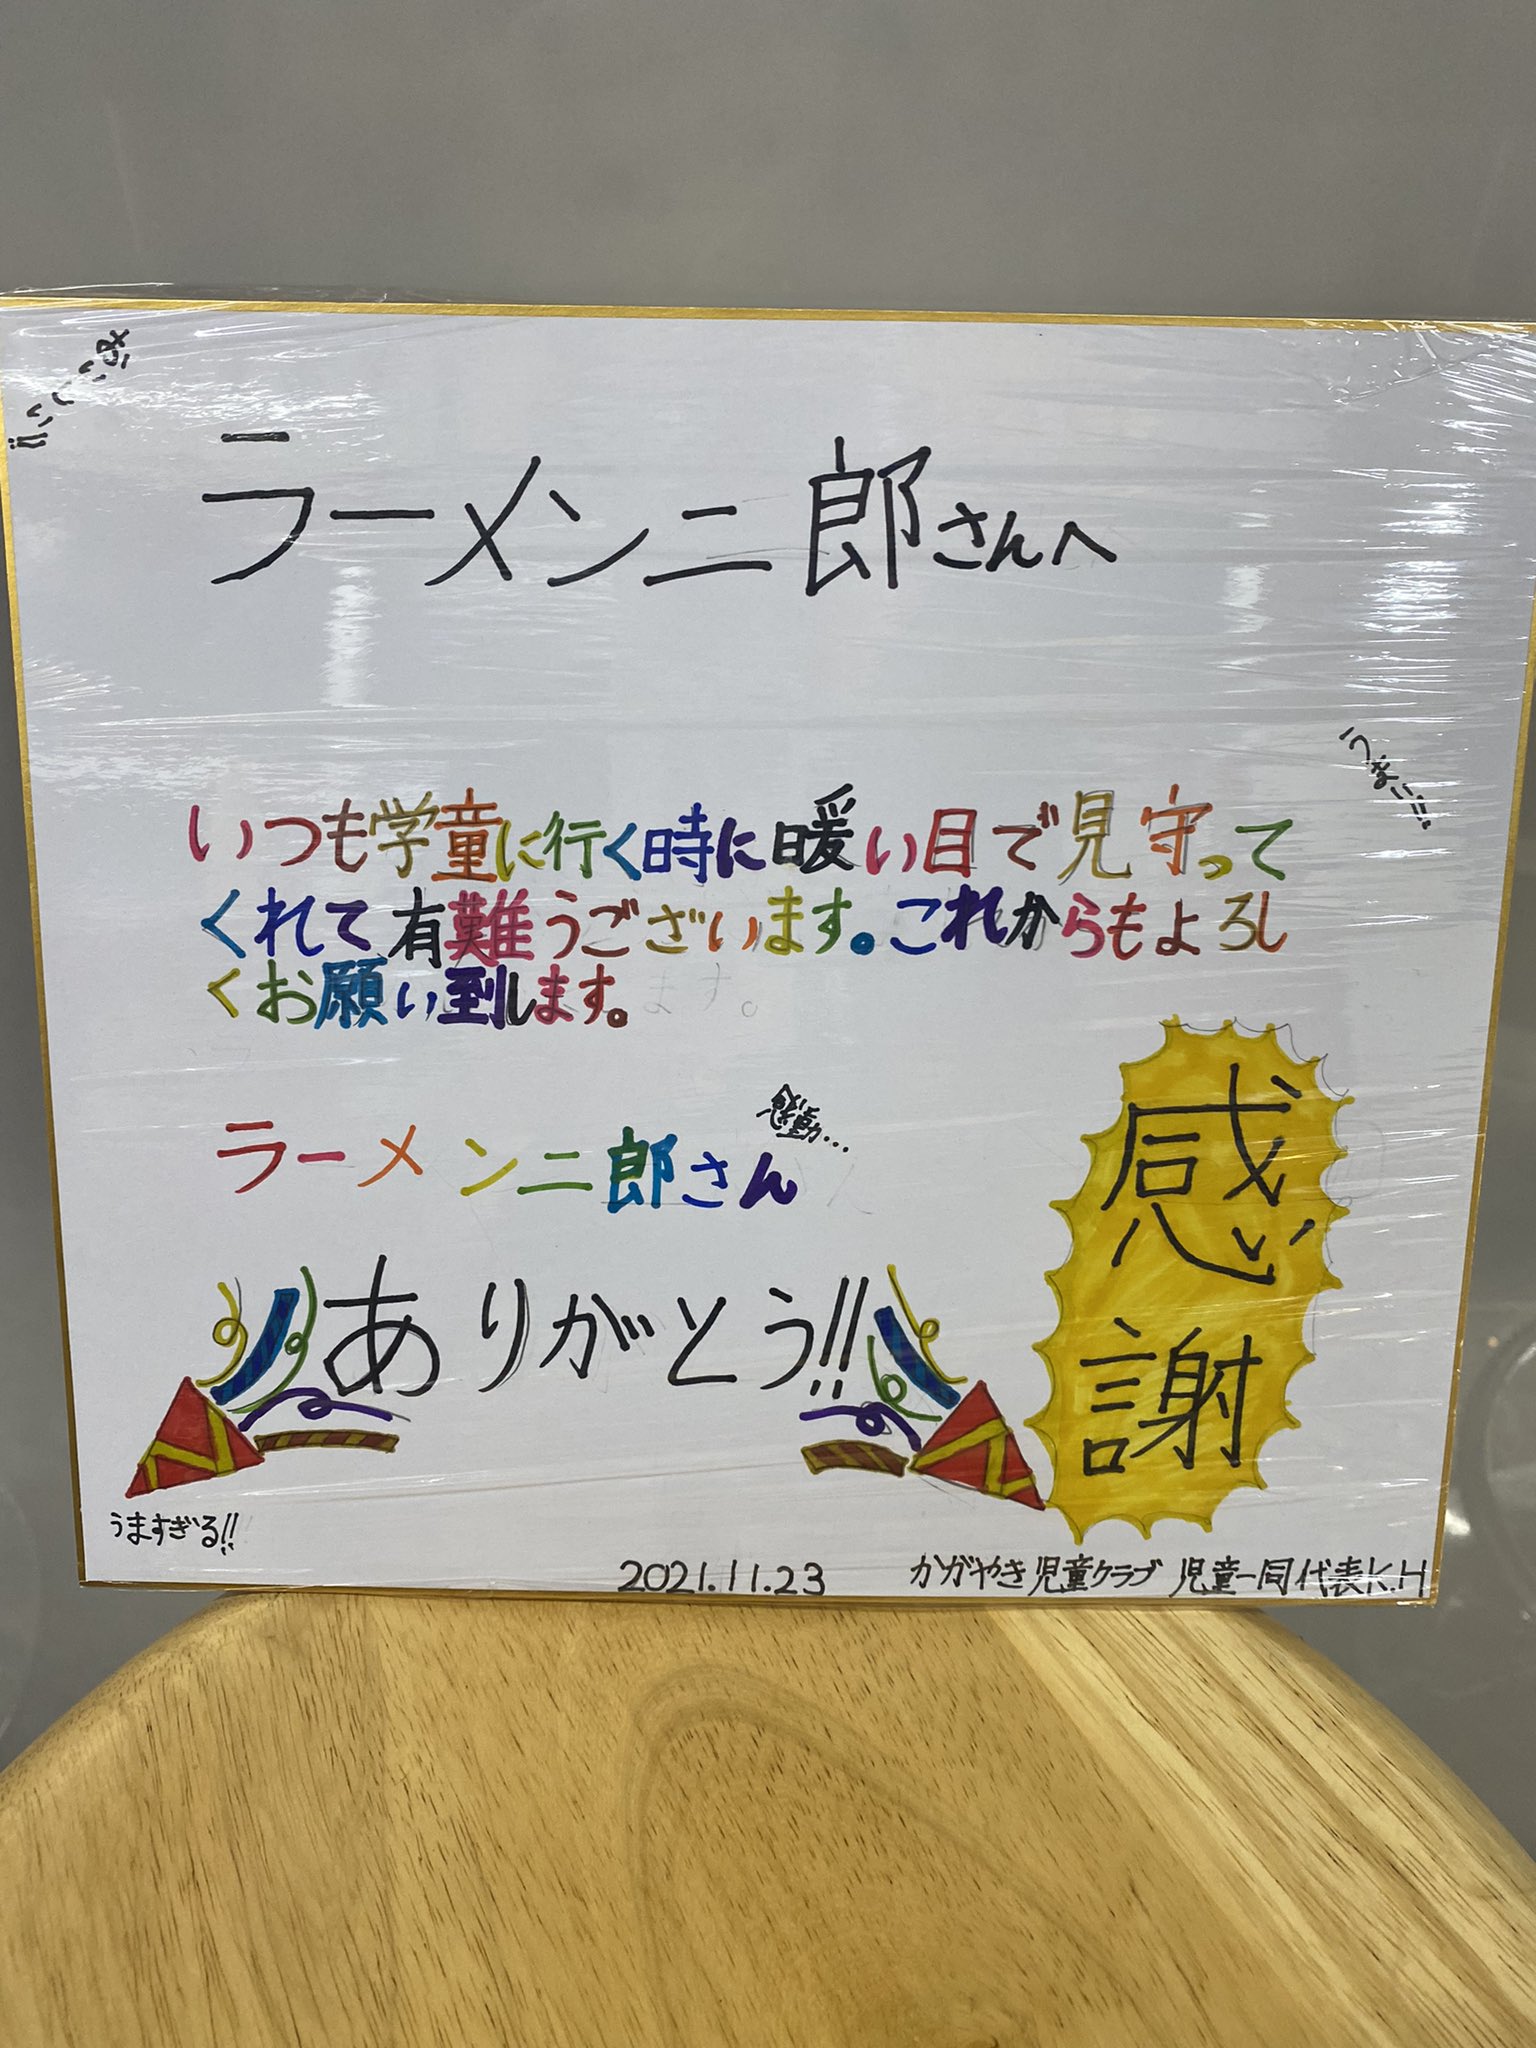 ラーメン二郎さんへ
うまい!!
いつも学童に行く時に暖い目で見守って
くれて有難うございます。これからもよろし
くお願い到します。
ラーメン二郎さん
感動…
ありがとう!!
感謝
うますぎる!!
2021.11.23 かがやき児童クラブ 児童一同代表K.H